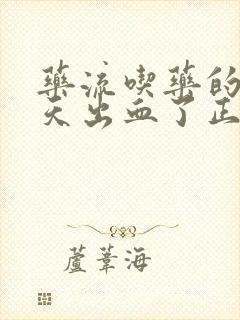 藥流喫藥的
天出血了正
蘆葦海